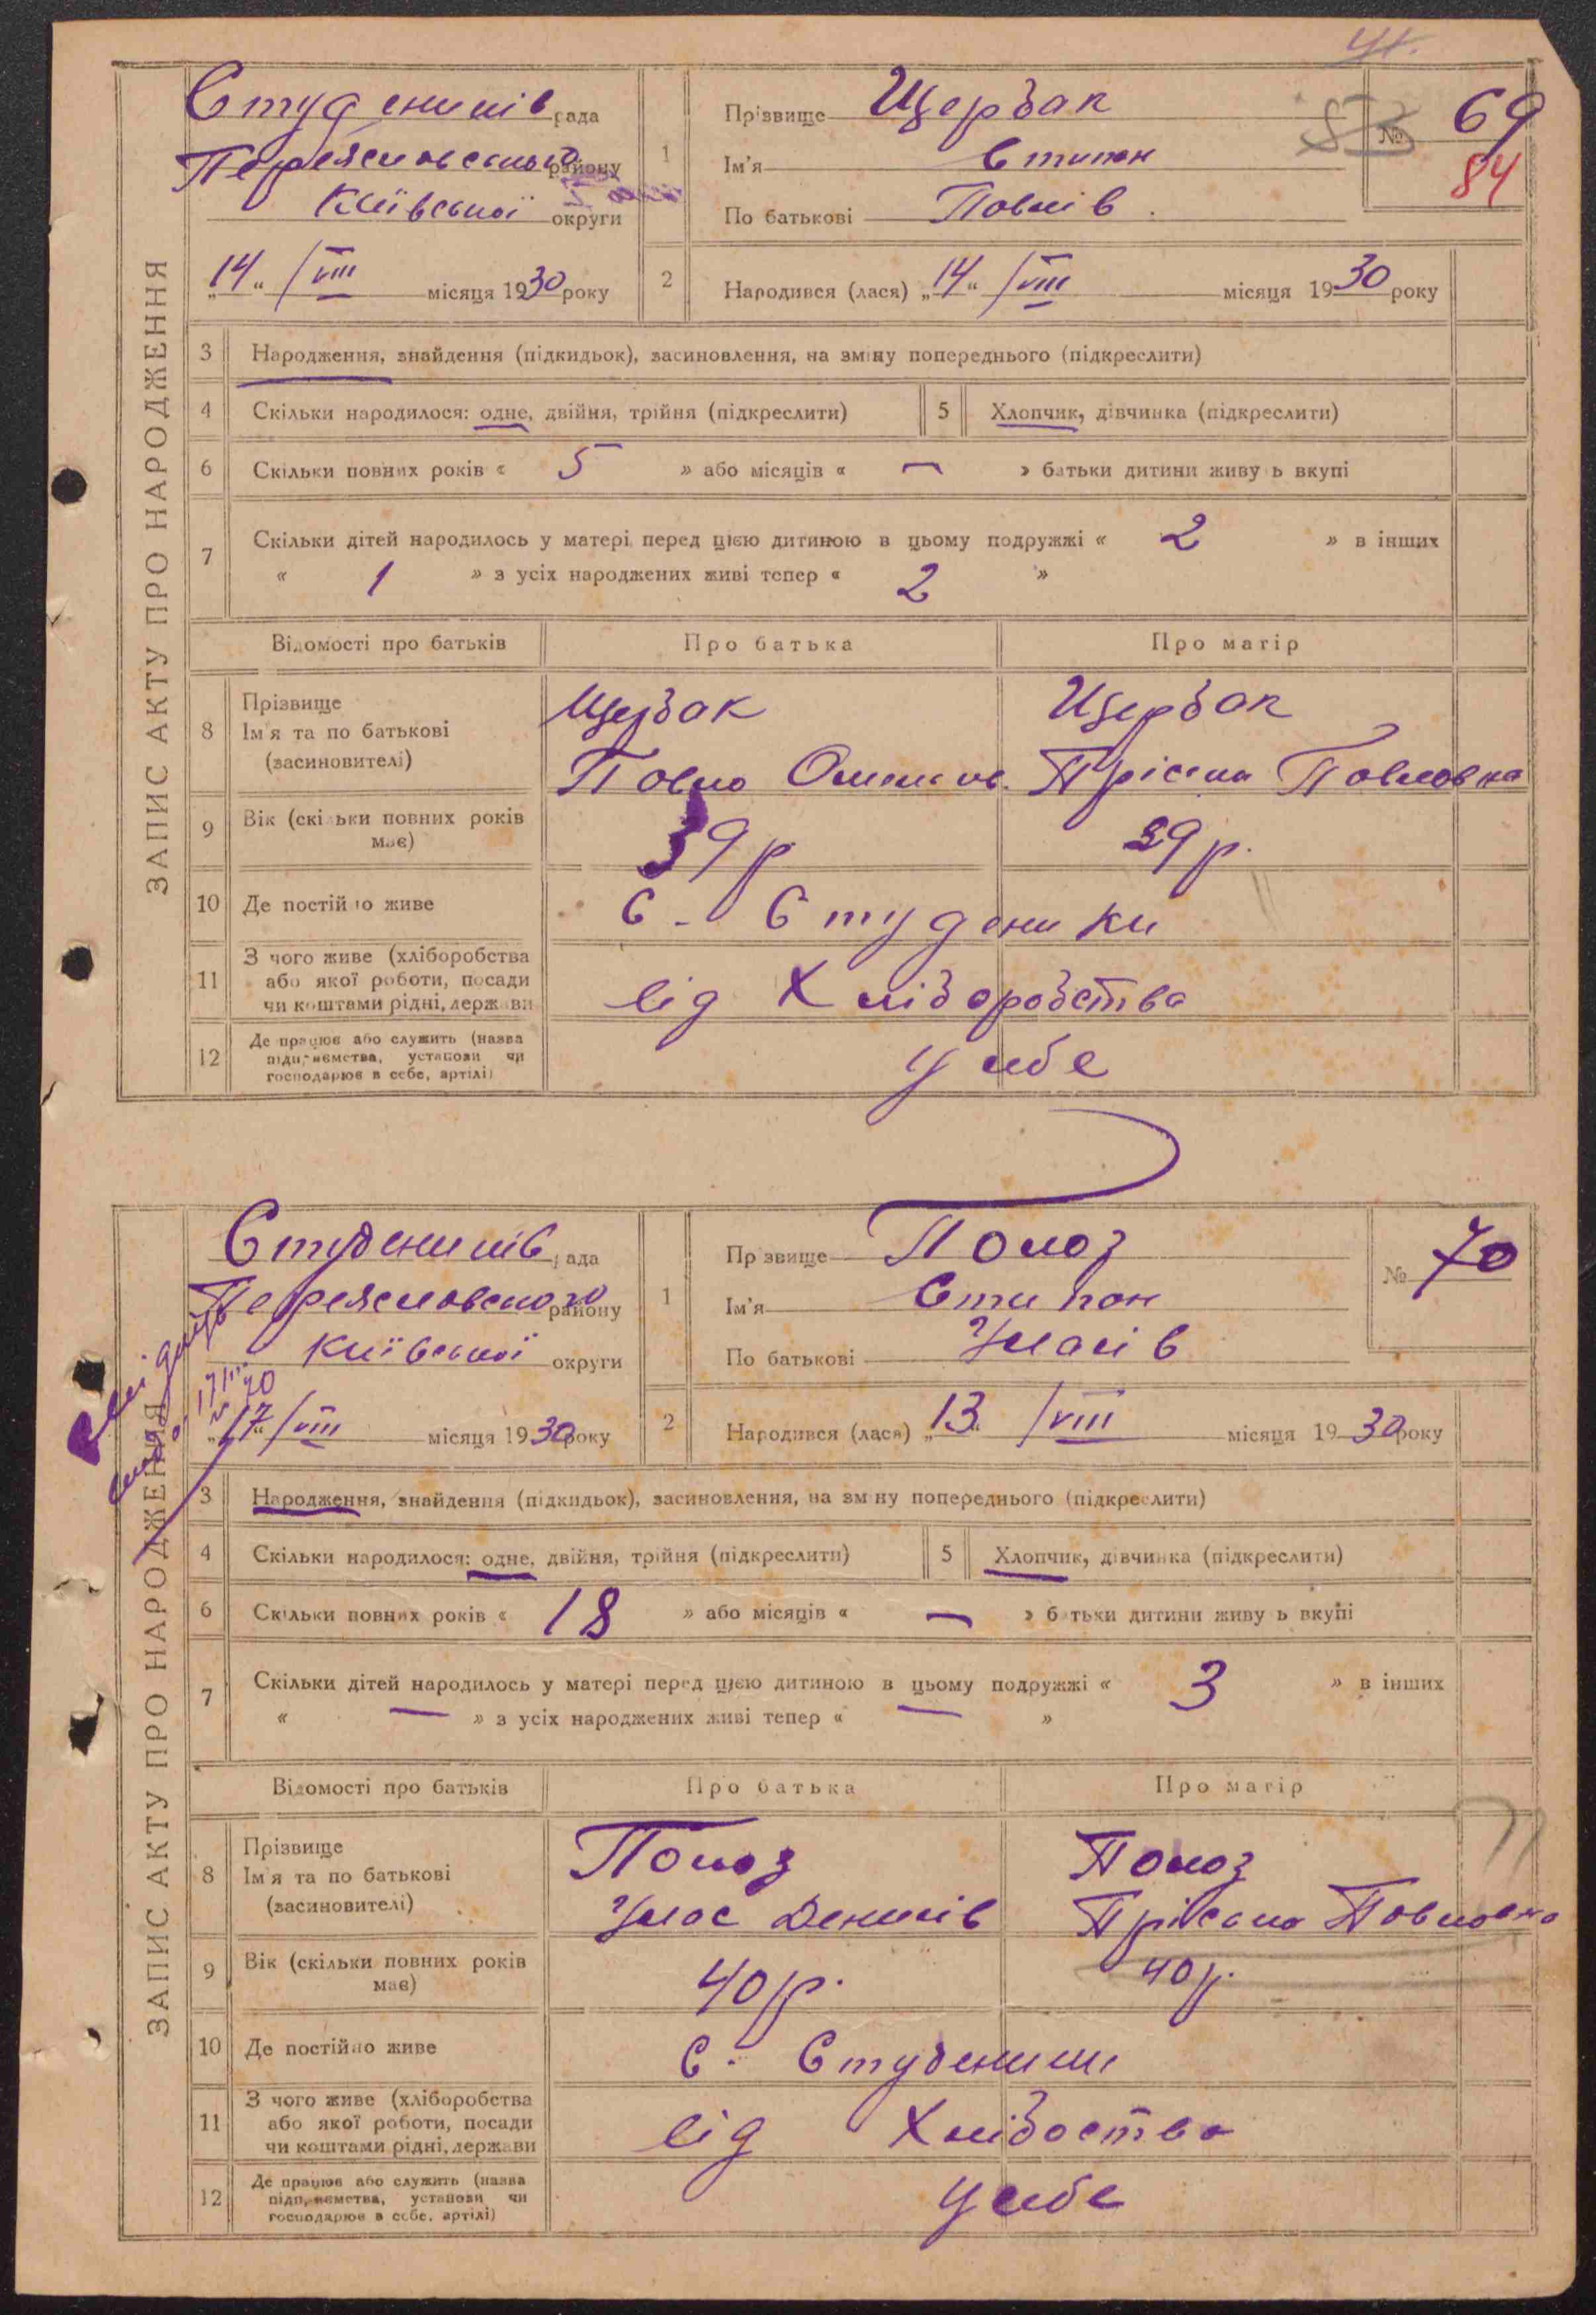 ЗАПИС АКТУ ПРО НАРОДЖЕННЯ
Студеників рада
Переяславського району
Київської округи
„14“ /VIII місяця 1930 року
1
Прізвище Щербак
Ім'я Степан
По батькові Павлів.
№ 69
84
2
Народився (лася) „14“ /VIII місяця 1930 року
3 Народження, знайдення (підкидьок), засиновлення, на зміну попереднього (підкреслити)
4 Скільки народилося: одне, двійня, трійня (підкреслити) 5 Хлопчик, дівчинка (підкреслити)
6 Скільки повних років « 5 » або місяців « — » батьки дитини живуть вкупі
7 Скільки дітей народилось у матері перед цією дитиною в цьому подружжі « 2 » в інших
« 1 » з усіх народжених живі тепер « 2 »
Відомості про батьків Про батька Про матір
8 Прізвище
Ім'я та по батькові
(засиновителі)
Щербак Щербак
Павло Прісська Павловна
9 Вік (скільки повних років
має)
39 р 39 р.
10 Де постійно живе с. Студеники
11 З чого живе (хліборобства
або якої роботи, посади
чи коштами рідні, держави
від Хліборобства
12 Де працює або служить (назва
підприємства, установи чи
господарює в себе, артілі)
у себе
ЗАПИС АКТУ ПРО НАРОДЖЕННЯ
Студеників рада
Переяславського району
Київської округи
„17“ /VIII місяця 1930 року
1
Прізвище Полоз
Ім'я Степан
По батькові Уласів
№ 70
2
Народився (лася) „13“ /VIII місяця 1930 року
3 Народження, знайдення (підкидьок), засиновлення, на зміну попереднього (підкреслити)
4 Скільки народилося: одне, двійня, трійня (підкреслити) 5 Хлопчик, дівчинка (підкреслити)
6 Скільки повних років « 18 » або місяців « — » батьки дитини живуть вкупі
7 Скільки дітей народилось у матері перед цією дитиною в цьому подружжі « 3 » в інших
« — » з усіх народжених живі тепер « — »
Відомості про батьків Про батька Про матір
8 Прізвище
Ім'я та по батькові
(засиновителі)
Полоз Полоз
Улас Денисів Пріська Павловна
9 Вік (скільки повних років
має)
40 р. 40 р.
10 Де постійно живе с. Студеники
11 З чого живе (хліборобства
або якої роботи, посади
чи коштами рідні, держави
від Хлібоства
12 Де працює або служить (назва
підприємства, установи чи
господарює в себе, артілі)
у себе